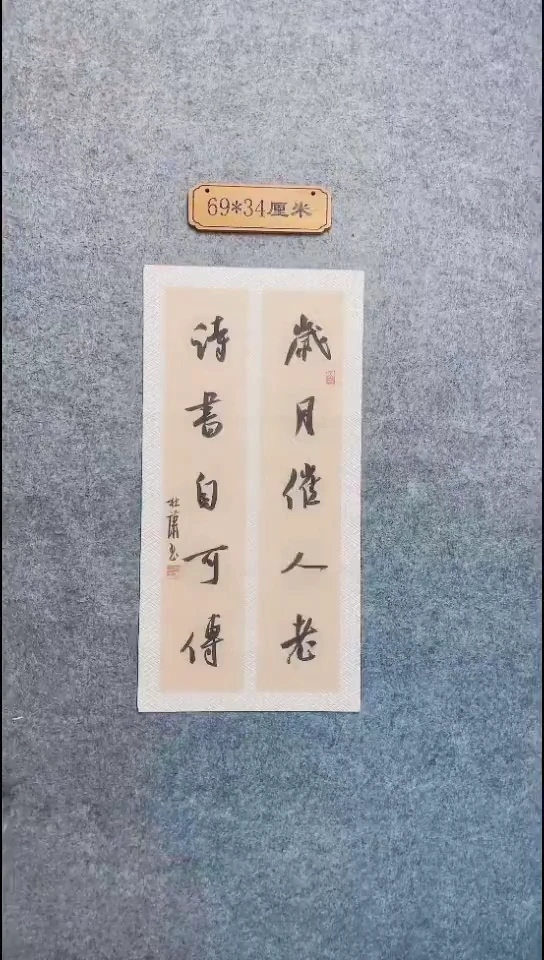 69*34厘米
歲月催人老
詩書自可傳